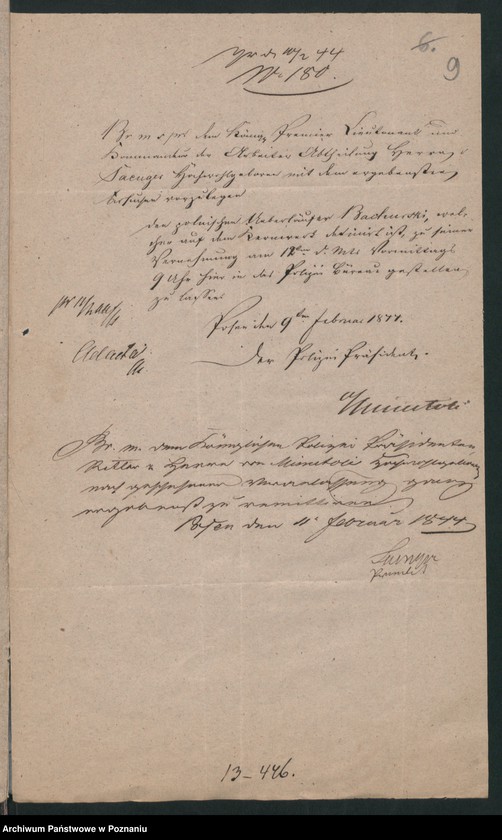 6.
9
pr. d. 10/2 44
No. 180.
Br. m. s. pr. dem Königl. Premier Lieutenant und
Kommandeur der Arbeiter Abtheilung Herrn
Hochwohlgeboren mit dem ergebensten
Ersuchen vorzulegen
den polnischen Ueberläufer Bachurski, wel-
cher auf dem Kernwerk detinirt ist, zu seiner
Vernehmung am 12ten d. Mts Vormittags
9 Uhr hier in das Polizei Büreau gestellen
zu lassen
Posen den 9ten Februar 1844.
Der Polizei Präsident.
Ad acta
Minutoli
Br. m. dem Königlichen Polizei Präsidenten
Ritter p Herrn von Minutoli Hochwohlgeboren
nach geschehener Veranlassung ganz
ergebenst zu remittiren
Posen den 11. Februar 1844
13-446.
Archiwum Państwowe w Poznaniu